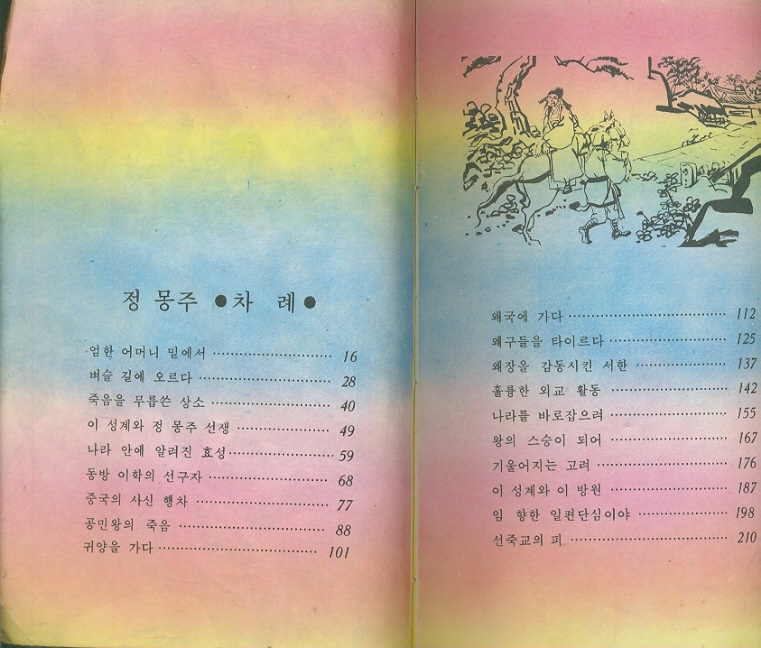 정 몽주 ●차 례●
엄한 어머니 밑에서 ································ 16
벼슬 길에 오르다 ································ 28
죽음을 무릅쓴 상소 ································ 40
이 성계와 정 몽주 선쟁 ································ 49
나라 안에 알려진 효성 ································ 59
동방 이학의 선구자 ································ 68
중국의 사신 행차 ································ 77
공민왕의 죽음 ································ 88
귀양을 가다 ································ 101
왜국에 가다 ································ 112
왜구들을 타이르다 ································ 125
왜장을 감동시킨 서한 ································ 137
훌륭한 외교 활동 ································ 142
나라를 바로잡으려 ································ 155
왕의 스승이 되어 ································ 167
기울어지는 고려 ································ 176
이 성계와 이 방원 ································ 187
임 향한 일편단심이야 ································ 198
선죽교의 피 ································ 210